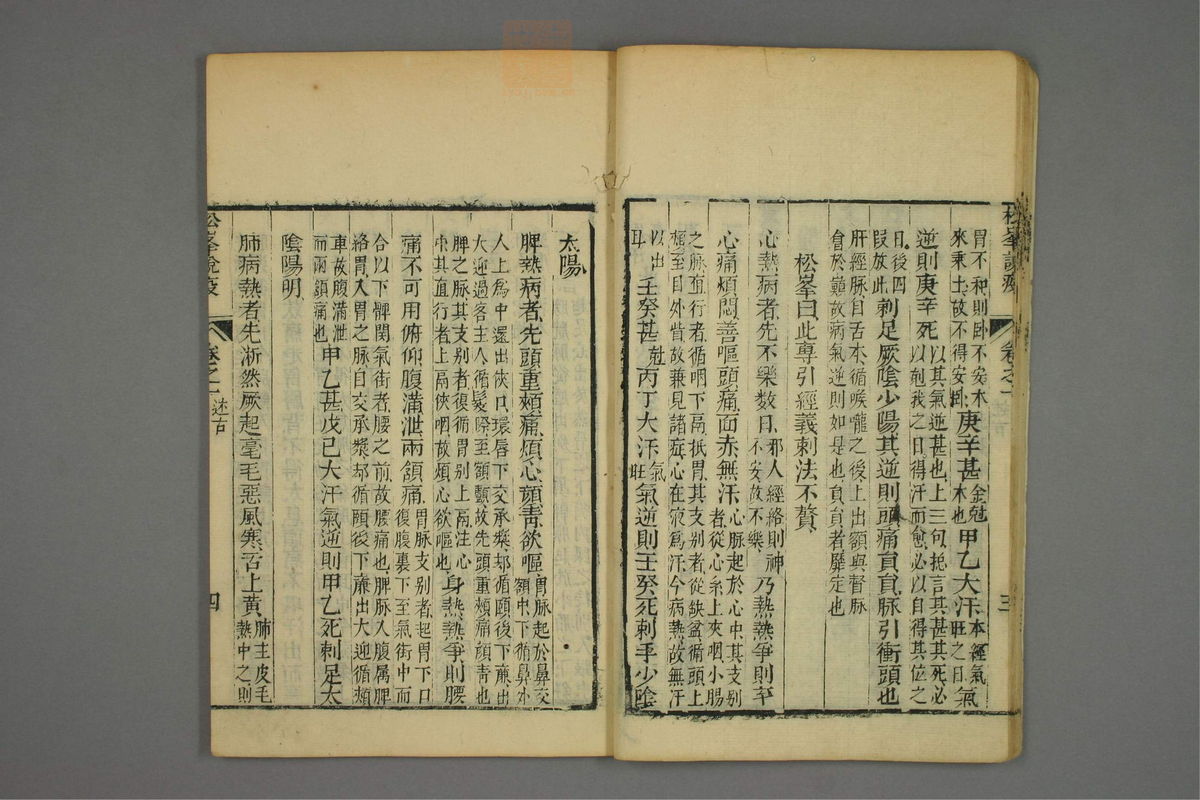 松峯說疫
卷之一
三
胃不和則臥不安木
來乘土故不得安臥庚辛甚金尅木也甲乙大汗本經氣旺之日氣
逆則庚辛死以其氣逆甚也上三句揔言其甚其死必以尅我之日得汗而愈必以自得其位之
日後四段放此刺足厥陰少陽其逆則頭痛員員脉引衝頭也
肝經脉自舌本循喉嚨之後上出額與督脉
會於巔故病氣逆則如是也員員者靡定也
松峯曰此專引經義刺法不贅
心熱病者先不樂數日邪人經絡則神不安故不樂乃熱熱爭則卒
心痛煩悶善嘔頭痛面赤無汗心脈起於心中其支别者從心系上夾咽小腸
之脉直行者循咽下膈抵胃其支别者從缺盆循頸上
頰至目外眥故兼見諸症心在液爲汗今病熱故無汗
以出耳壬癸甚尅丙丁大汗氣旺氣逆則壬癸死刺手少陰
太陽
脾熱病者先頭重頰痛煩心顏靑欲嘔胃脈起於鼻交額中下循鼻外
人上齒中還出俠口環唇下交承漿却循頤後下亷出
大迎過客主人循髮際至額顱故先頭重頰痛顏青也
脾之脉其支别者復循胃别上膈注心
中其直行者上膈俠咽故煩心欲嘔也身熱熱爭則腰
痛不可用俯仰腹滿泄兩頷痛胃脈支别者起胃下口復腹裏下至氣街中而
合以下髀関氣街者腰之前故腰痛也脾脈入腹属脾
絡胃入胃之脈自交承漿却循頤後下亷出大迎循頰
車故腹滿泄而兩頷痛也甲乙甚戊巳大汗氣逆則甲乙死刺足太
陰陽明
肺病熱者先淅然厥起毫毛惡風寒舌上黄肺主皮毛熱中之則
松峯說疫
卷之一
述古
四